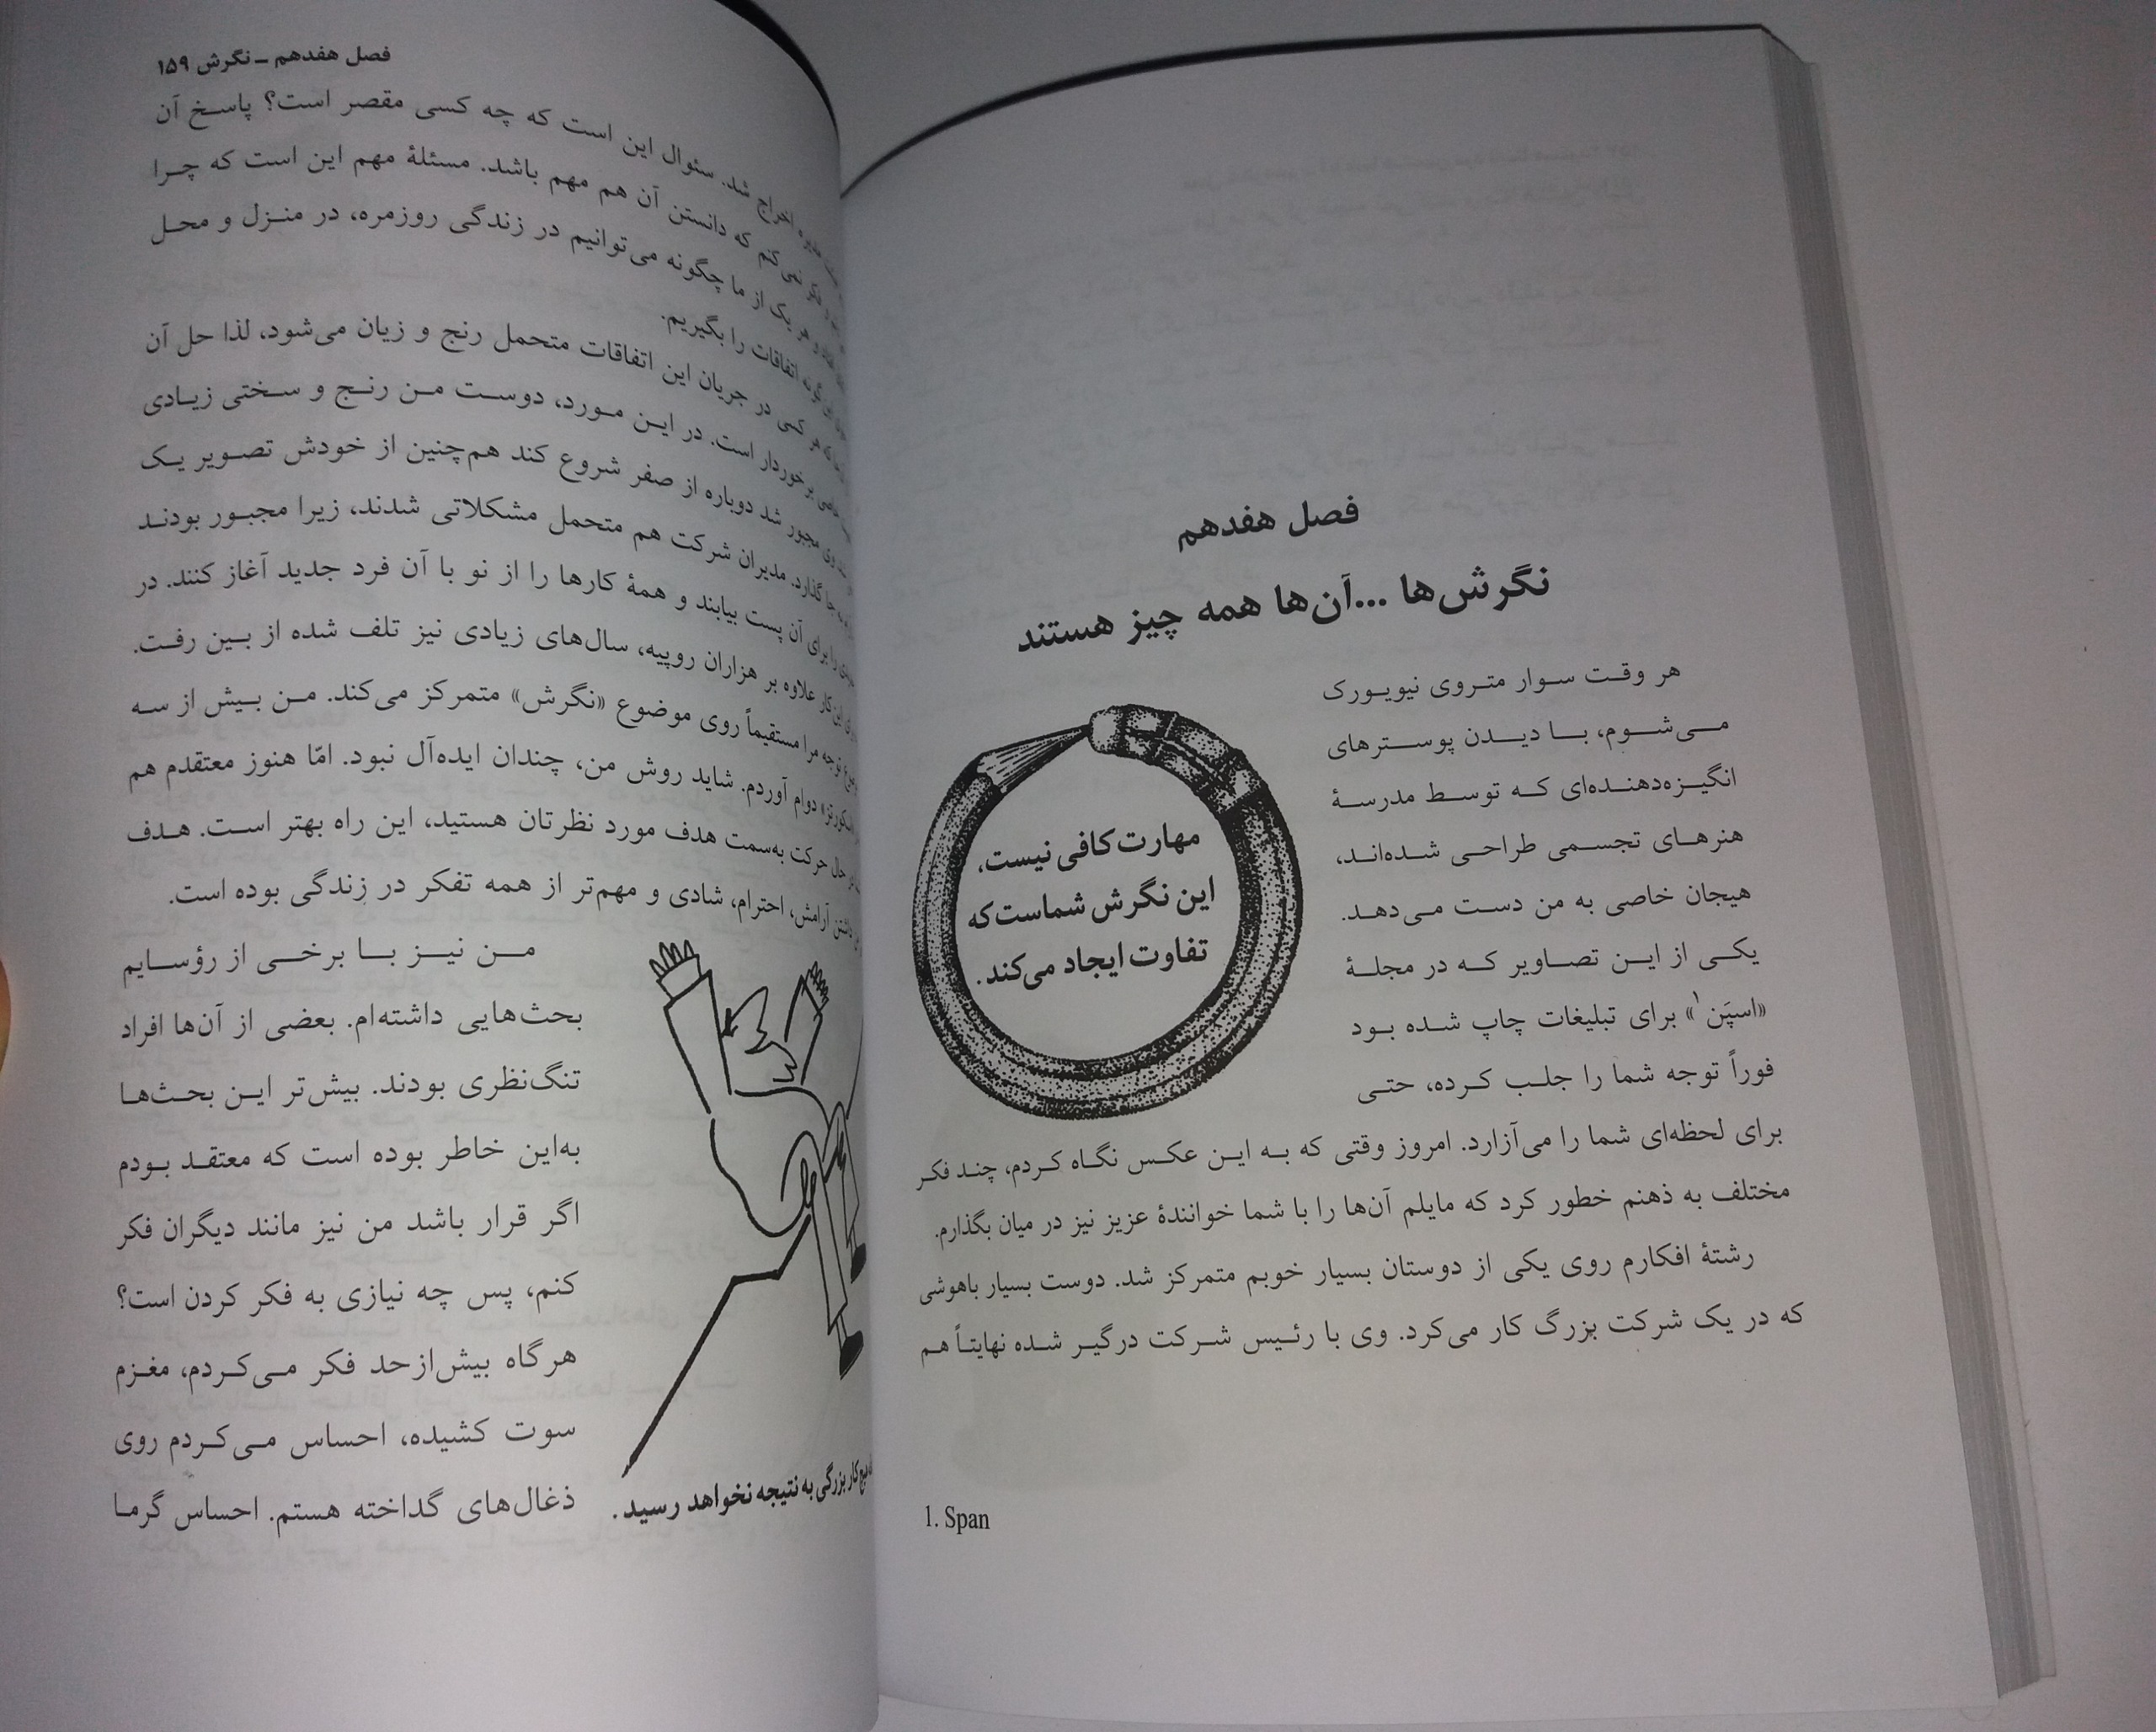 فصل هفدهم
نگرش‌ها ...آن‌ها همه چیز هستند
هر وقت سوار متروی نیویورک
می‌شوم، با دیدن پوسترهای
انگیزه‌دهنده‌ای که توسط مدرسهٔ
هنرهای تجسمی طراحی شده‌اند،
هیجان خاصی به من دست می‌دهد.
یکی از این تصاویر که در مجلهٔ
«اسپَن۱» برای تبلیغات چاپ شده بود
فوراً توجه شما را جلب کرده، حتی
مهارت کافی نیست،
این نگرش شماست که
تفاوت ایجاد می‌کند.
برای لحظه‌ای شما را می‌آزارد. امروز وقتی که به این عکس نگاه کردم، چند فکر
مختلف به ذهنم خطور کرد که مایلم آن‌ها را با شما خوانندهٔ عزیز نیز در میان بگذارم.
رشتهٔ افکارم روی یکی از دوستان بسیار خوبم متمرکز شد. دوست بسیار باهوشی
که در یک شرکت بزرگ کار می‌کرد. وی با رئیس شرکت درگیر شده نهایتاً هم
1. Span
فصل هفدهم ــ نگرش ۱۵۹
اخراج شد. سئوال این است که چه کسی مقصر است؟ پاسخ آن
فکر نمی‌کنم که دانستن آن هم مهم باشد. مسئلهٔ مهم این است که چرا
و هر یک از ما چگونه می‌توانیم در زندگی روزمره، در منزل و محل
گونه اتفاقات را بگیریم.
که هر کسی در جریان این اتفاقات متحمل رنج و زیان می‌شود، لذا حل آن
برخوردار است. در این مورد، دوست من رنج و سختی زیادی
وی مجبور شد دوباره از صفر شروع کند هم‌چنین از خودش تصویر یک
جا گذارد. مدیران شرکت هم متحمل مشکلاتی شدند، زیرا مجبور بودند
را برای آن پست بیابند و همهٔ کارها را از نو با آن فرد جدید آغاز کنند. در
این کار علاوه بر هزاران روپیه، سال‌های زیادی نیز تلف شده از بین رفت.
توجه مرا مستقیماً روی موضوع «نگرش» متمرکز می‌کند. من بیش از سه
دوام آوردم. شاید روش من، چندان ایده‌آل نبود. امّا هنوز معتقدم هم
در حال حرکت به‌سمت هدف مورد نظرتان هستید، این راه بهتر است. هدف
داشتن آرامش، احترام، شادی و مهم‌تر از همه تفکر در زندگی بوده است.
من نیز با برخی از رؤسایم
بحث‌هایی داشته‌ام. بعضی از آن‌ها افراد
تنگ‌نظری بودند. بیش‌تر این بحث‌ها
به‌این خاطر بوده است که معتقد بودم
اگر قرار باشد من نیز مانند دیگران فکر
کنم، پس چه نیازی به فکر کردن است؟
هرگاه بیش‌ازحد فکر می‌کردم، مغزم
سوت کشیده، احساس می‌کردم روی
ذغال‌های گداخته هستم. احساس گرما
هیچ کار بزرگی به نتیجه نخواهد رسید.